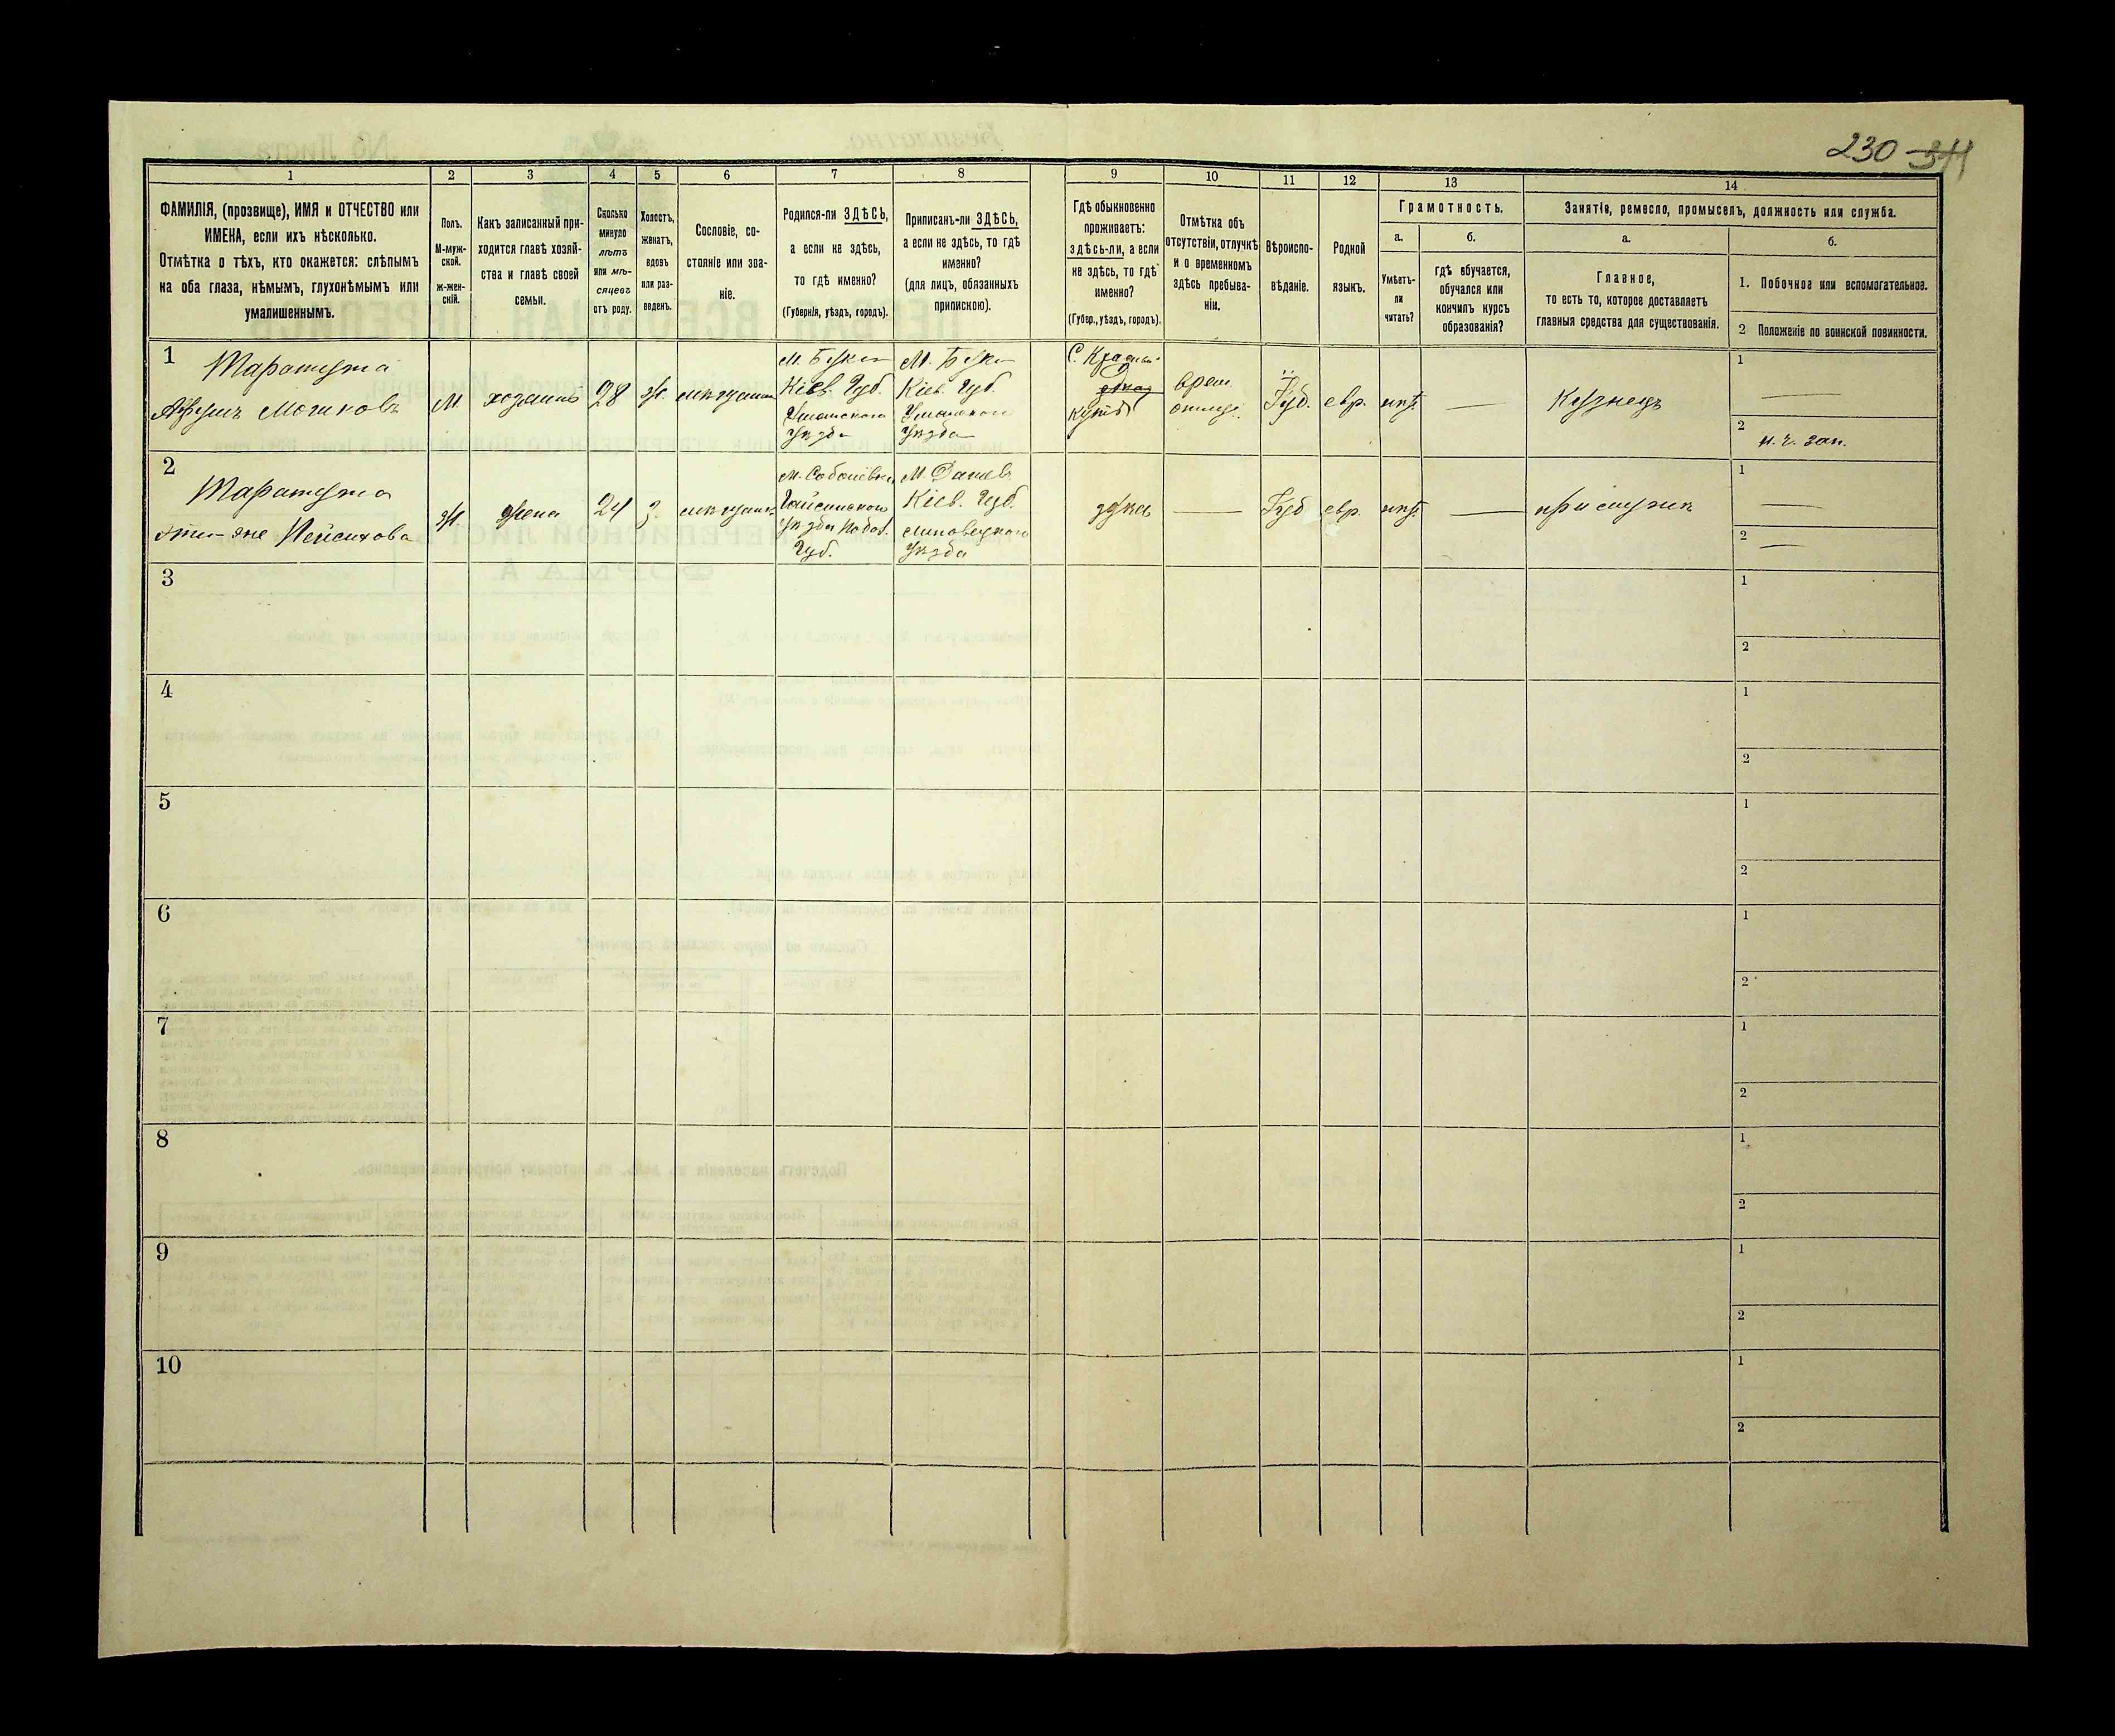 230 341
1 2 3 4 5 6 7 8 9 10 11 12 13 14
ФАМИЛІЯ, (прозвище), ИМЯ и ОТЧЕСТВО или
ИМЕНА, если ихъ нѣсколько.
Отмѣтка о тѣхъ, кто окажется: слѣпымъ
на оба глаза, нѣмымъ, глухонѣмымъ или
умалишеннымъ.
Полъ.
М-муж-
ской.
ж-жен-
скій.
Какъ записанный при-
ходится главѣ хозяй-
ства и главѣ своей
семьи.
Сколько
минуло
лѣтъ
или мѣ-
сяцевъ
отъ роду.
Холостъ,
женатъ,
вдовъ
или раз-
веденъ.
Сословіе, со-
стояніе или зва-
ніе.
Родился-ли ЗДѢСЬ,
а если не здѣсь,
то гдѣ именно?
(Губернія, уѣздъ, городъ).
Приписанъ-ли ЗДѢСЬ,
а если не здѣсь, то гдѣ
именно?
(для лицъ, обязанныхъ
припискою).
Гдѣ обыкновенно
проживаетъ:
здѣсь-ли, а если
не здѣсь, то гдѣ
именно?
(Губер., уѣздъ, городъ).
Отмѣтка объ
отсутствіи, отлучкѣ
и о временномъ
здѣсь пребыва-
ніи.
Вѣроиспо-
вѣданіе.
Родной
языкъ.
Грамотность.
а.
Умѣетъ-
ли
читать?
б.
гдѣ обучается,
обучался или
кончилъ курсъ
образованія?
Занятіе, ремесло, промыселъ, должность или служба.
а.
Главное,
то есть то, которое доставляетъ
главныя средства для существованія.
б.
1. Побочное или вспомогательное.
2 Положеніе по воинской повинности.
1
Таратута
М.
хозяинъ
28
ж.
М. Буки
Кіев. Губ.
Уманского
Уѣзда
М. Буки
Кіев. Губ.
Уманского
Уѣзда
здѣсь
врем.
Іуд.
евр.
Кузнецъ
1
2
2
Таратута
ж.
жена
24
з.
М. Соболевка
Гайсинского
Уѣзда Подол.
Губ.
М. Дашев
Кіев. Губ.
Липовецкого
Уѣзда
здѣсь
Іуд
евр.
1
2
3
1
2
4
1
2
5
1
2
6
1
2
7
1
2
8
1
2
9
1
2
10
1
2